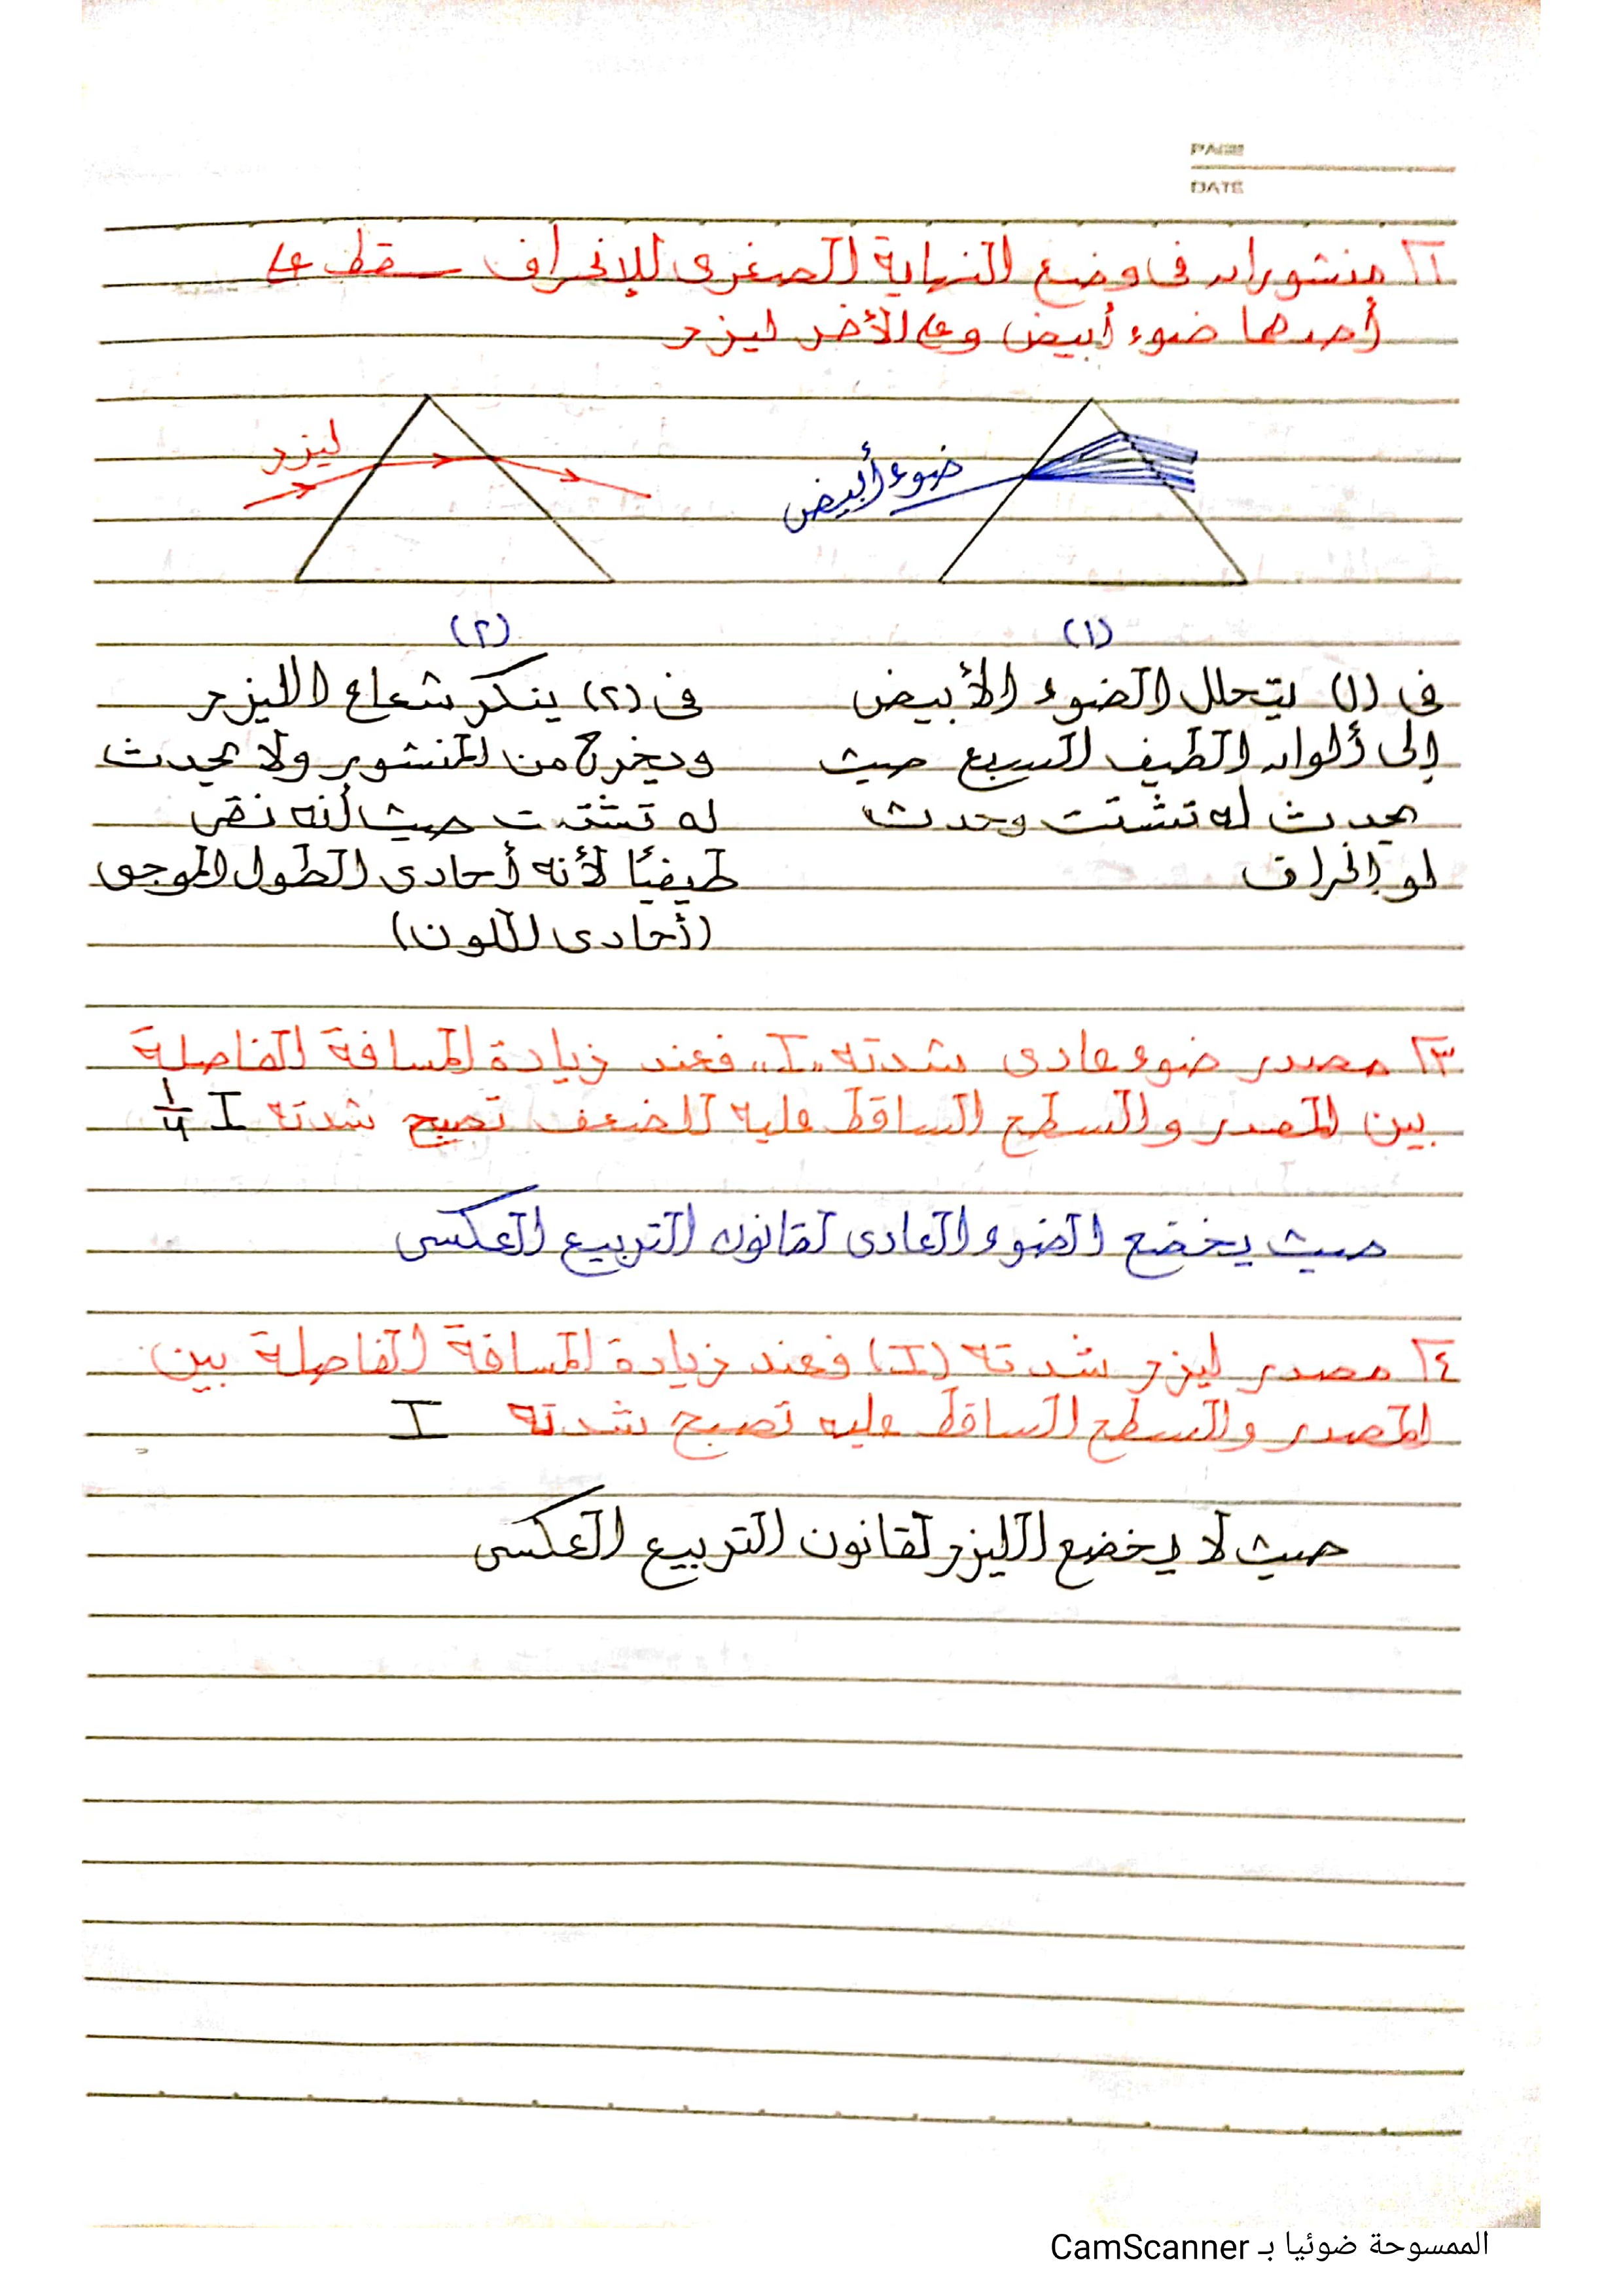 PAGE
DATE
٢] منشوران فى وضع النهاية الصغرى للإنحراف سقط على
أحدهما ضوء أبيض وعلى الأخر ليزر
ليزر
ضوء أبيض
(١)
(٢)
فى (١) يتحلل الضوء الأبيض
إلى ألوان الطيف السبع حيث
يحدث له تشتت وحدث
لو إنحراف
فى (٢) ينكر شعاع الليزر
ويخرج من المنشور ولا يحدث
له تشتت حيث أنه نقى
طيفيًا لأنه أحادى الطول الموجى
(أحادى اللون)
٣] مصدر ضوء عادى شدته "I" فعند زيادة المسافة الفاصلة
بين المصدر والسطح الساقط عليه للضعف تصبح شدته I ¼
حيث يخضع الضوء العادى لقانون التربيع العكسى
٤] مصدر ليزر شدته (I) فعند زيادة المسافة الفاصلة بين
المصدر والسطح الساقط عليه تصبح شدته I
حيث لا يخضع الليزر لقانون التربيع العكسى
الممسوحة ضوئيا بـ CamScanner